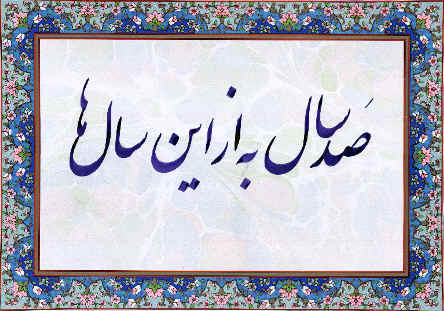 صد سال به از این سال ها